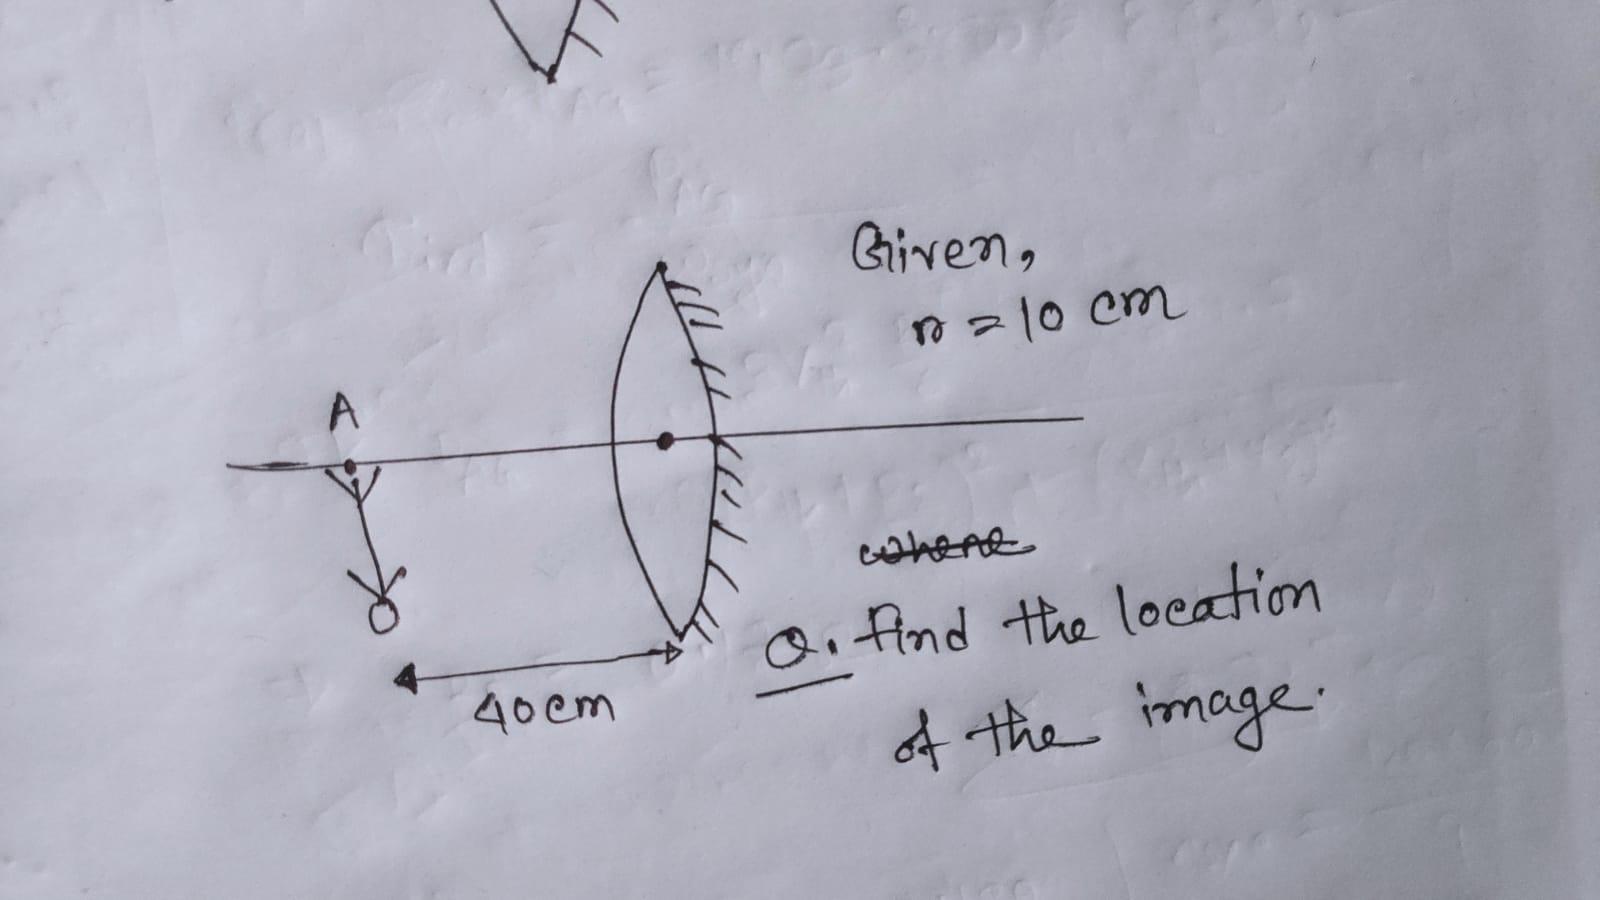 Given,
r = 10 cm
A
where
Q. find the location
40cm
of the image.